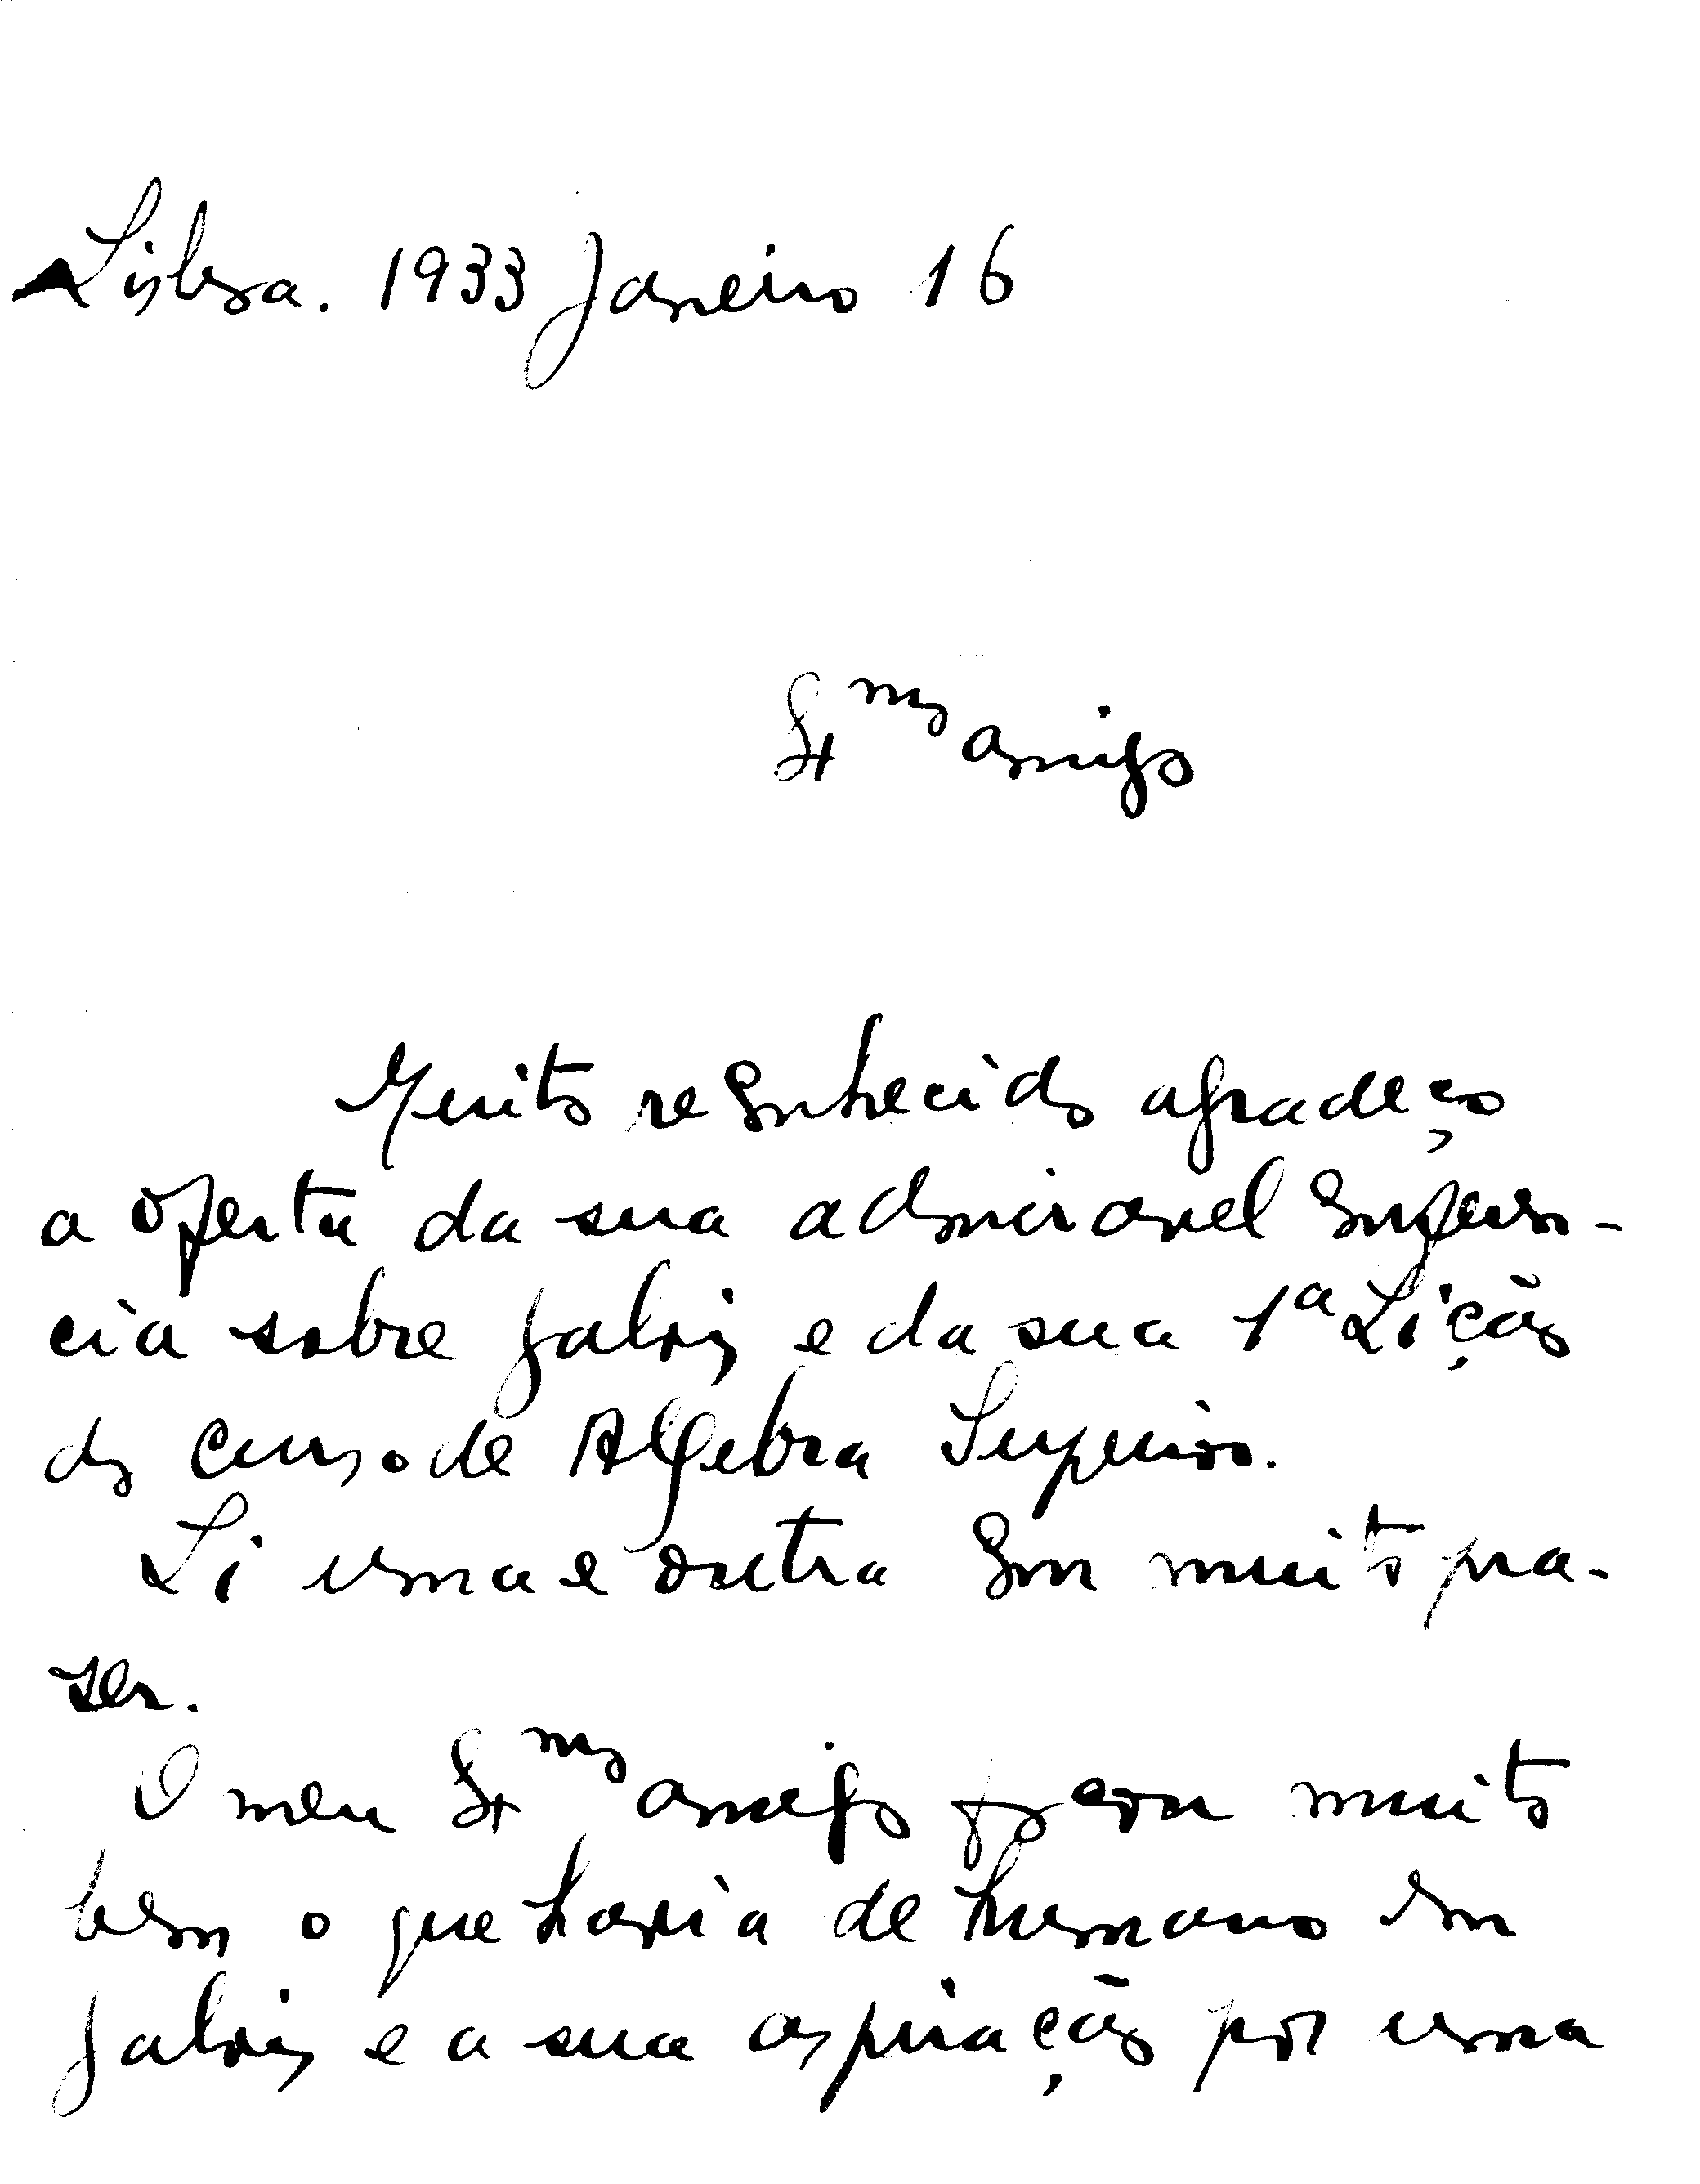 Lisboa. 1933 Janeiro 16
Exmo amigo
Muito reconhecido agradeço
a oferta da sua admiravel conferen-
cia sobre Galois e da sua 1ª Lição
do curso de Algebra Superior.
Li uma e outra com muito pra-
ser.
O meu Exmo amigo focou muito
bem o que havia de humano em
Galois e a sua aspiração por uma